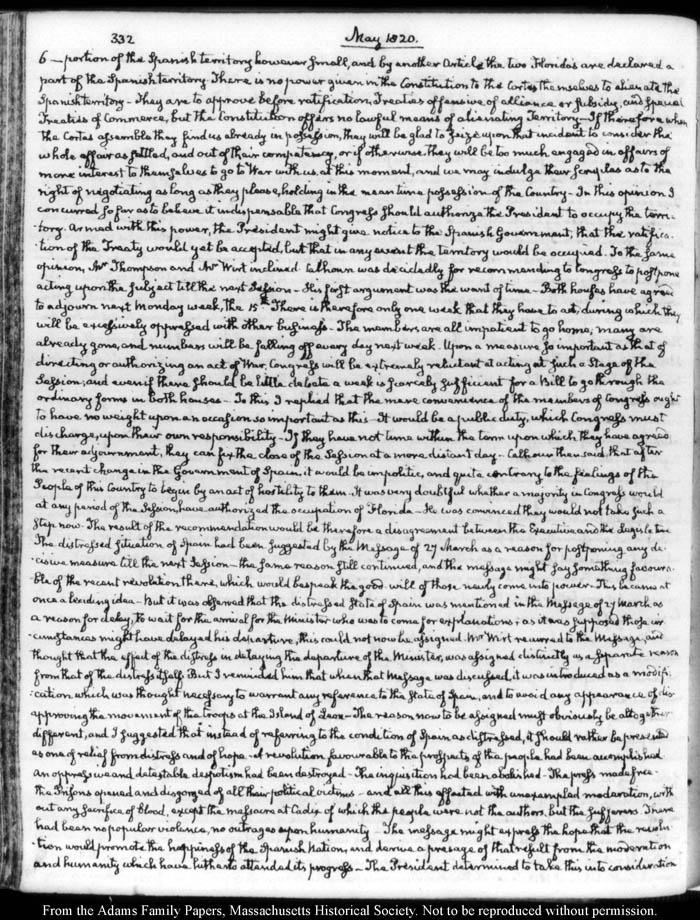 332
May 1820.
6 — portion of the Spanish territory however small, and by another Article the two Florida's are declared a
part of the Spanish territory. There is no power given in the Constitution to the Cortes themselves to alienate the
Spanish territory — They are to approve before ratification, Treaties offensive of alliance or subsidy, and special
Treaties of Commerce, but the Constitution offers no lawful means of alienating Territory — If therefore when
the Cortes assemble they find us already in possession, they will be glad to seize upon that incident to consider the
whole affair as settled, and out of their competency, or if otherwise they will be too much engaged in affairs of
more interest to themselves to go to War with us, at this moment, and we may indulge their scruples as to the
right of negotiating as long as they please, holding in the mean time possession of the Country — In this opinion I
concurred so far as to believe it indispensable that Congress should authorize the President to occupy the terri-
-tory. Armed with this power, the President might give notice to the Spanish Government, that the ratifica-
-tion of the Treaty would yet be accepted, but that in any event the territory would be occupied. To the same
opinion, Mr Thompson and Mr Wirt inclined. Calhoun was decidedly for recommending to Congress to postpone
acting upon the subject till the next Session — His first argument was the want of time — Both houses have agreed
to adjourn next Monday week, the 15th. There is therefore only one week that they have to act, during which they
will be excessively oppressed with other business — The members are all impatient to go home; many are
already gone, and numbers will be falling off every day next week. Upon a measure so important as that of
directing or authorizing an act of War, Congress will be extremely reluctant at acting at such a Stage of the
Session; and even if there should be little debate a week is scarcely sufficient for a Bill to go through the
ordinary forms in both houses — To this I replied that the mere convenience of the members of Congress ought
to have no weight upon an occasion so important as this — It would be a public duty, which Congress must
discharge, upon their own responsibility — If they have not time within the term upon which they have agreed
for their adjournment, they can fix the close of the Session at a more distant day — Calhoun then said that after
the recent change in the Government of Spain, it would be impolitic, and quite contrary to the feelings of the
People of this Country to begin by an act of hostility to them. It was very doubtful whether a majority in Congress would
at any period of the Session, have authorized the occupation of Florida — He was convinced they would not take such a
step now. The result of the recommendation would be therefore a disagreement between the Executive and the Legislature
The distressed situation of Spain had been suggested by the Message of 27 March as a reason for postponing any de-
-cisive measure till the next Session — the same reason still continued, and the message might say something favoura-
-ble of the recent revolution there, which would bespeak the good will of those newly come into power — This became at
once a leading idea — But it was observed that the distressed State of Spain was mentioned in the Message of 27 March as
a reason for delay, to wait for the arrival for the Minister who was to come for explanations; as it was supposed those cir-
-cumstances might have delayed his departure, this could not now be assigned. Mr Wirt recurred to the Message, and
thought that the effect of the distress in delaying the departure of the Minister, was assigned distinctly as a separate reason
from that of the distress itself. But I reminded him that when that Message was discussed, it was introduced as a modifi-
-cation which was thought necessary to warrant any reference to the State of Spain, and to avoid any appearance of dis-
approving the movement of the troops at the Island of Leon — The reason now to be assigned must obviously be altogether
different, and I suggested that instead of referring to the condition of Spain as distressed, it should rather be presented
as one of relief from distress and of hope. A revolution favourable to the prospects of the people had been accomplished
An oppressive and detestable despotism had been destroyed — The inquisition had been abolished — The press made free —
the Prisons opened and disgorged of all their political victims — and all this effected with unexampled moderation, with-
out any sacrifice of blood, except the massacre at Cadiz of which the people were not the authors, but the sufferers. There
had been no popular violence, no outrages upon humanity — The message might express the hope that the revolu-
-tion would promote the happiness of the Spanish Nation, and derive a presage of that result from the moderation
and humanity which have hitherto attended its progress — The President determined to take this into consideration
From the Adams Family Papers, Massachusetts Historical Society. Not to be reproduced without permission.